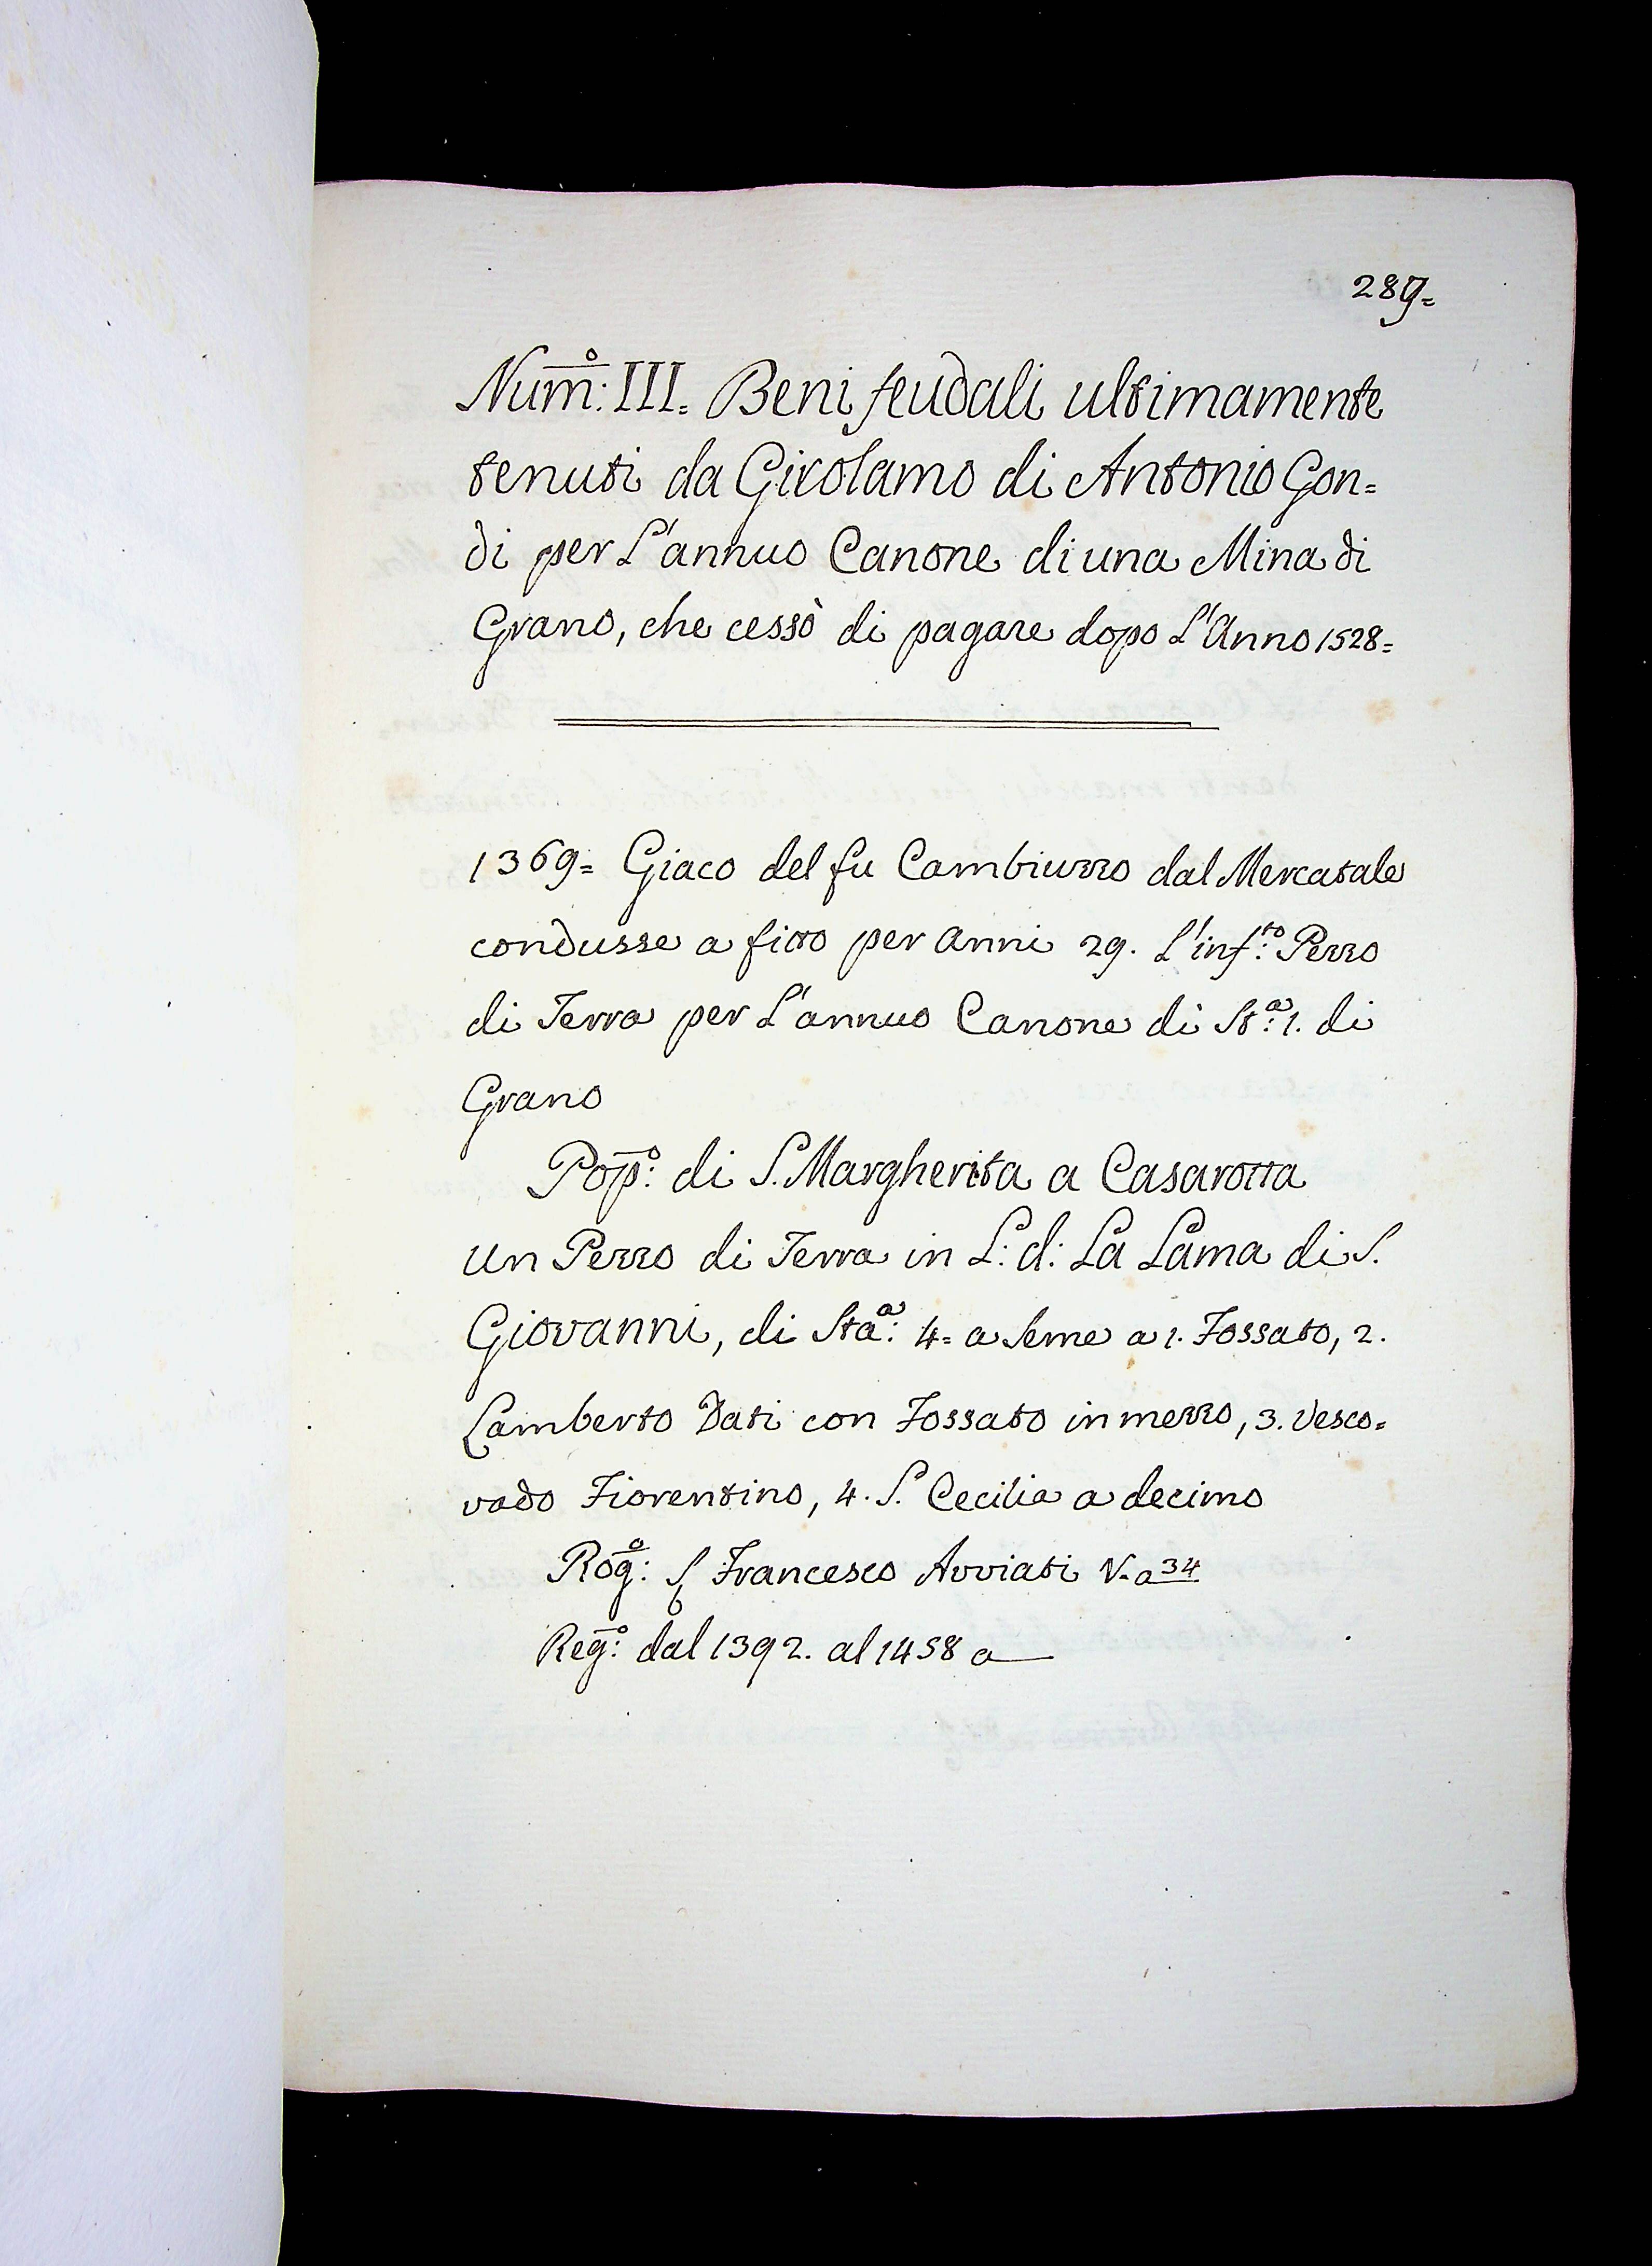 289=
Num̅:º III. Beni feudali ultimamente
tenuti da Girolamo di Antonio Gon=
di per L'annuo Canone di una Mina di
Grano, che cessò di pagare dopo L'Anno 1528=
1369= Giaco del fu Cambiuzzo dal Mercatale
condusse a fitto per anni 29. L'inf:ᵗᵒ Pezzo
di Terra per L'annuo Canone di St:ᵃ 1. di
Grano
Pop̅:º di S. Margherita a Casarotta
un Pezzo di Terra in L: d: La Lama di S.
Giovanni, di Sta:ᵃ 4= a Seme a 1. Fossato, 2.
Lamberto Dati con Fossato in mezzo, 3. Vesco=
vado Fiorentino, 4. S. Cecilia a decimo
Rog̅:º S. Francesco Avviati N. a 34
Reg̅:º dal 1392. al 1458 a